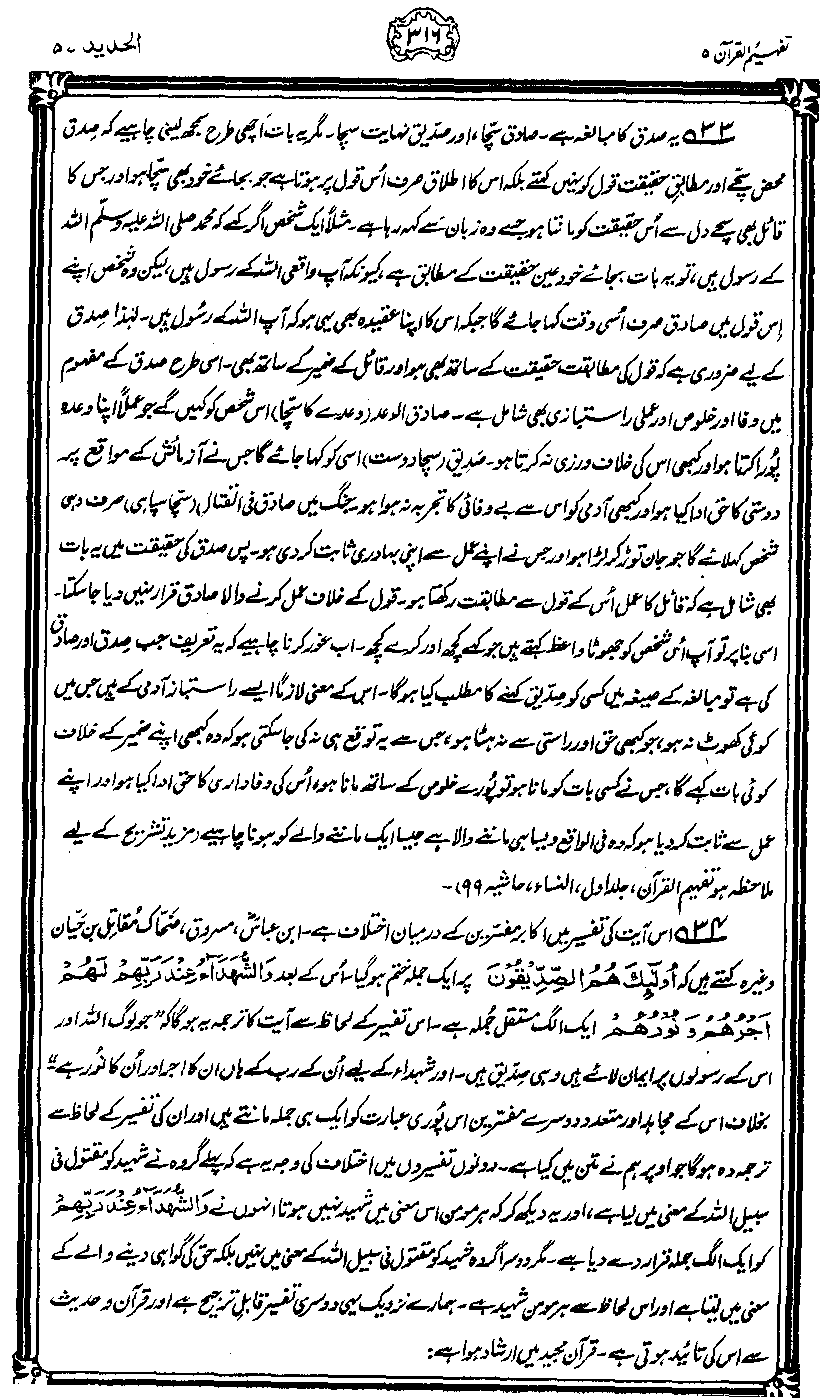 تفہیم القرآن ۵
۳۱۶
الحدید ۔ ۵
۳۳ یہ صدق کا مبالغہ ہے۔ صادق سچا، اور صدّیق نہایت سچا۔ مگر یہ بات اچھی طرح سمجھ لینی چاہیے کہ صِدق
محض سچّے اور مطابقِ حقیقت قول کو نہیں کہتے بلکہ اس کا اطلاق صرف اُس قول پر ہوتا ہے جو بجائے خود بھی سچّا ہو اور جس کا
قائل بھی سچے دل سے اُس حقیقت کو مانتا ہو جسے وہ زبان سے کہہ رہا ہے۔ مثلاً ایک شخص اگر کہے کہ محمد صلی اللہ علیہ وسلّم اللہ
کے رسول ہیں، تو یہ بات بجائے خود عین حقیقت کے مطابق ہے، کیونکہ آپ واقعی اللہ کے رسول ہیں، لیکن وہ شخص اپنے
اِس قول میں صادق صرف اُسی وقت کہا جائے گا جبکہ اس کا اپنا عقیدہ بھی یہی ہو کہ آپ اللہ کے رسُول ہیں۔ لہٰذا صِدق
کے لیے ضروری ہے کہ قول کی مطابقت حقیقت کے ساتھ بھی ہو اور قائل کے ضمیر کے ساتھ بھی۔ اسی طرح صدق کے مفہوم
میں وفا اور خلوص اور عملی راستبازی بھی شامل ہے۔ صادق الوعد (وعدے کا سچّا) اس شخص کو کہیں گے جو عملاً اپنا وعدہ
پُورا کرتا ہو اور کبھی اس کی خلاف ورزی نہ کرتا ہو۔ صَدِیق (سچا دوست) اسی کو کہا جائے گا جس نے آزمائش کے مواقع پر
دوستی کا حق ادا کیا ہو اور کبھی آدمی کو اس سے بے وفائی کا تجربہ نہ ہوا ہو۔ جنگ میں صادق فی القتال (سچا سپاہی) صرف وہی
شخص کہلائے گا جو جان توڑ کر لڑا ہو اور جس نے اپنے عمل سے اپنی بہادری ثابت کر دی ہو۔ پس صدق کی حقیقت میں یہ بات
بھی شامل ہے کہ قائل کا عمل اُس کے قول سے مطابقت رکھتا ہو۔ قول کے خلاف عمل کرنے والا صادق قرار نہیں دیا جا سکتا۔
اسی بنا پر تو آپ اُس شخص کو جھوٹا واعظ کہتے ہیں جو کہے کچھ اور کرے کچھ۔ اب غور کرنا چاہیے کہ یہ تعریف جب صِدق اور صادق
کی ہے تو مبالغہ کے صیغہ میں کسی کو صِدّیق کہنے کا مطلب کیا ہوگا۔ اس کے معنی لازماً ایسے راستباز آدمی کے ہیں جس میں
کوئی کھوٹ نہ ہو، جو کبھی حق اور راستی سے نہ ہٹا ہو، جس سے یہ توقع ہی نہ کی جا سکتی ہو کہ وہ کبھی اپنے ضمیر کے خلاف
کوئی بات کہے گا، جس نے کسی بات کو مانا ہو تو پُورے خلوص کے ساتھ مانا ہو، اُس کی وفاداری کا حق ادا کیا ہو اور اپنے
عمل سے ثابت کر دیا ہو کہ وہ فی الواقع ویسا ہی ماننے والا ہے جیسا ایک ماننے والے کو ہونا چاہیے (مزید تشریح کے لیے
ملاحظہ ہو تفہیم القرآن، جلد اول، النساء، حاشیہ ۹۹)۔
۳۴ اس آیت کی تفسیر میں اکابر مفسّرین کے درمیان اختلاف ہے۔ ابن عباسؓ، مسروق، ضحّاک، مُقاتل بن حَیّان
وغیرہ کہتے ہیں کہ اُولٰٓئِکَ ھُمُ الصِّدِّیْقُوْنَ پر ایک جملہ ختم ہو گیا۔ اُس کے بعد وَالشُّھَدَآءُ عِنْدَ رَبِّھِمْ لَھُمْ
اَجْرُھُمْ وَ نُوْرُھُمْ ایک الگ مستقل جُملہ ہے۔ اس تفسیر کے لحاظ سے آیت کا ترجمہ یہ ہوگا کہ "جو لوگ اللہ اور
اس کے رسولوں پر ایمان لائے ہیں وہی صِدّیق ہیں۔ اور شہداء کے لیے اُن کے رب کے ہاں ان کا اجر اور اُن کا نُور ہے"
بخلاف اس کے مجاہد اور متعدد دوسرے مفسّرین اس پُوری عبارت کو ایک ہی جملہ مانتے ہیں اور ان کی تفسیر کے لحاظ سے
ترجمہ وہ ہوگا جو اوپر ہم نے متن میں کیا ہے۔ دونوں تفسیروں میں اختلاف کی وجہ یہ ہے کہ پہلے گروہ نے شہید کو مقتول فی
سبیل اللہ کے معنی میں لیا ہے، اور یہ دیکھ کر کہ ہر مومن اس معنی میں شہید نہیں ہوتا انہوں نے وَالشُّھَدَآءُ عِنْدَ رَبِّھِمْ
کو ایک الگ جملہ قرار دے دیا ہے۔ مگر دوسرا گروہ شہید کو مقتول فی سبیل اللہ کے معنی میں نہیں بلکہ حق کی گواہی دینے والے کے
معنی میں لیتا ہے اور اس لحاظ سے ہر مومن شہید ہے۔ ہمارے نزدیک یہی دوسری تفسیر قابلِ ترجیح ہے اور قرآن و حدیث
سے اس کی تائید ہوتی ہے۔ قرآن مجید میں ارشاد ہوا ہے: